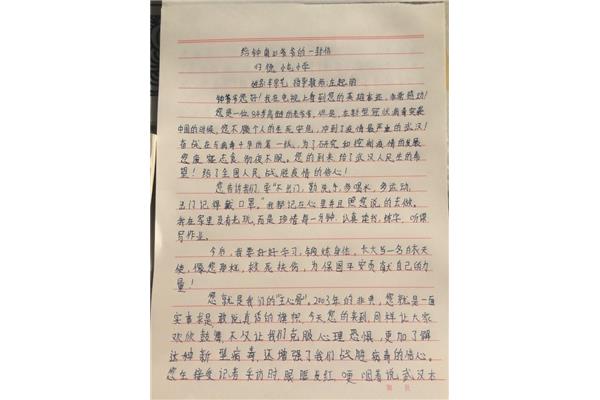 给钟南山爷爷的一封信
行德 小学
指导教师:左艳丽
钟爷爷您好!我在电视上看到您的英雄事迹,非常感动!
您是一位84岁高龄的老爷爷,但是,在新型冠状病毒突袭
中国的时候,您不顾个人的生死安危,冲到了疫情最严重的武汉!
奋战在与病毒斗争的第一线,为了研究和控制疫情的发展
您废寝忘食 彻夜不眠。您的到来给了武汉人民生的希
望!给了全国人民 战胜疫情的信心!
您告诉我们,要“不出门,勤洗手,多喝水,多运动,
出门记得戴口罩。”我都记在心里并且照您说的去做。
我在家里没有光玩,而是珍惜每一分钟,认真读书,练字,听课
写作业。
今后,我要好好学习,锻炼身体,长大当一名白衣天
使,像您那样,救死扶伤,为保国平安贡献自己的力
量!
您就是我们的“主心骨”。2003年的非典,您就是一面
实事求是,敢说真话的旗帜,今天您的来到,同样让大家
欢欣鼓舞,不仅让我们克服心理恐惧,更加了解
这种新型病毒,还增强了我们战胜病毒的信心。
您在接受记者采访时,眼眶发红,哽咽着说,武汉本